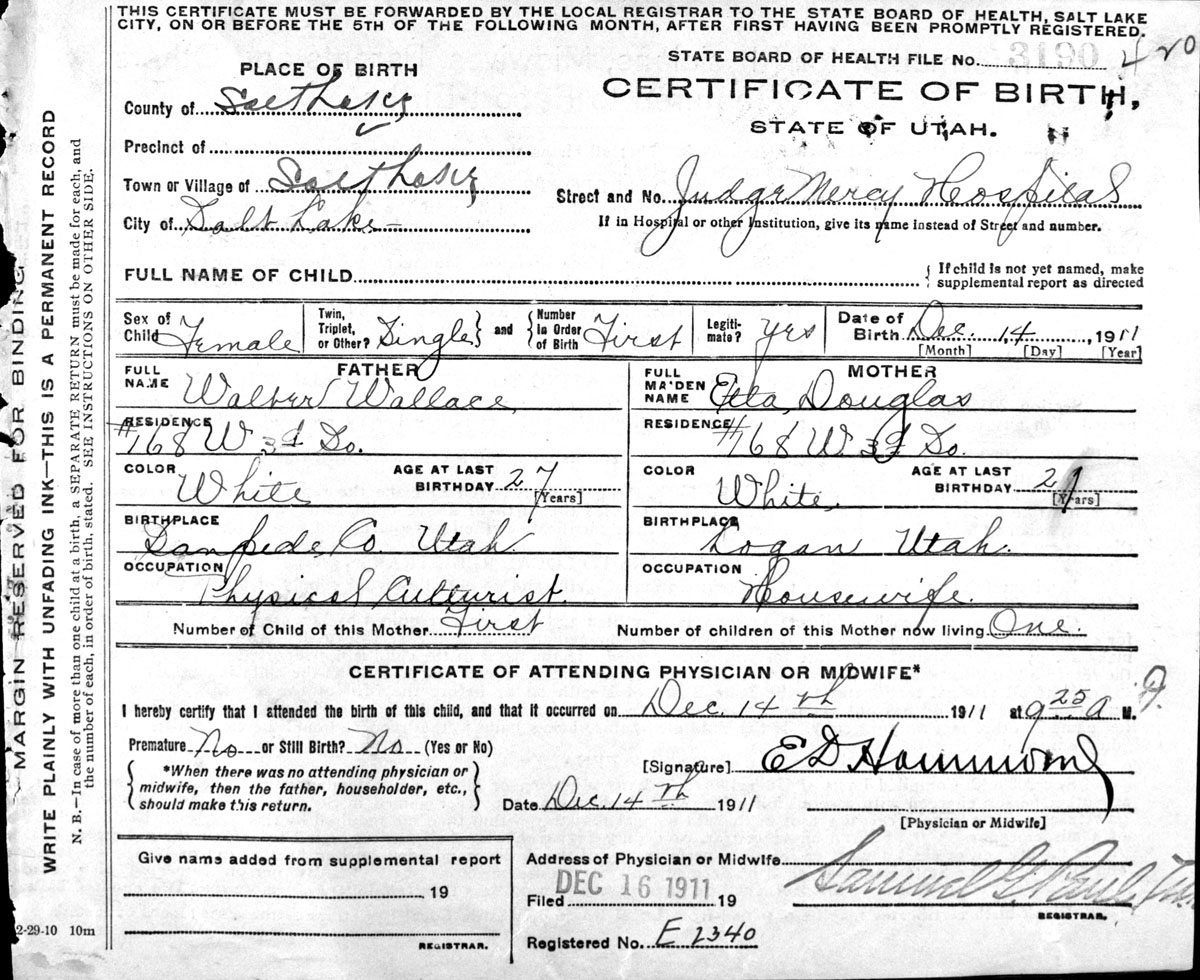 THIS CERTIFICATE MUST BE FORWARDED BY THE LOCAL REGISTRAR TO THE STATE BOARD OF HEALTH, SALT LAKE
CITY, ON OR BEFORE THE 5TH OF THE FOLLOWING MONTH, AFTER FIRST HAVING BEEN PROMPTLY REGISTERED.
STATE BOARD OF HEALTH FILE No. 3190 420
PLACE OF BIRTH
CERTIFICATE OF BIRTH,
STATE OF UTAH.
County of Salt Lake
Precinct of
Town or Village of Salt Lake
Street and No. Judge Mercy Hospital
City of Salt Lake
If in Hospital or other Institution, give its name instead of Street and number.
FULL NAME OF CHILD
If child is not yet named, make
supplemental report as directed
Sex of Child Female
Twin, Triplet, or Other? Single and Number in Order of Birth First
Legiti-mate? Yes
Date of Birth Dec. 14, 1911
[Month] [Day] [Year]
FATHER
FULL NAME Walter Wallace
RESIDENCE #168 W 3d So.
COLOR White
AGE AT LAST BIRTHDAY 27 [Years]
BIRTHPLACE Sanpede Co. Utah
OCCUPATION Physical Culturist
MOTHER
FULL MAIDEN NAME Etta Douglas
RESIDENCE #168 W 3d So.
COLOR White
AGE AT LAST BIRTHDAY 21 [Years]
BIRTHPLACE Logan Utah.
OCCUPATION Housewife.
Number of Child of this Mother First
Number of children of this Mother now living One.
CERTIFICATE OF ATTENDING PHYSICIAN OR MIDWIFE*
I hereby certify that I attended the birth of this child, and that it occurred on Dec. 14th 1911 at 9 25 a M.
Premature No or Still Birth? No (Yes or No)
*When there was no attending physician or
midwife, then the father, householder, etc.,
should make this return.
[Signature] E D Hammond
Date Dec. 14th 1911
[Physician or Midwife]
Give name added from supplemental report
19
REGISTRAR.
Address of Physician or Midwife
Filed DEC 16 1911 19
Samuel G. Paul
REGISTRAR.
Registered No. E 2340
2-29-10 10m
MARGIN RESERVED FOR BINDING
WRITE PLAINLY WITH UNFADING INK—THIS IS A PERMANENT RECORD
N. B.—In case of more than one child at a birth, a SEPARATE RETURN must be made for each, and
the number of each, in order of birth, stated. SEE INSTRUCTIONS ON OTHER SIDE.